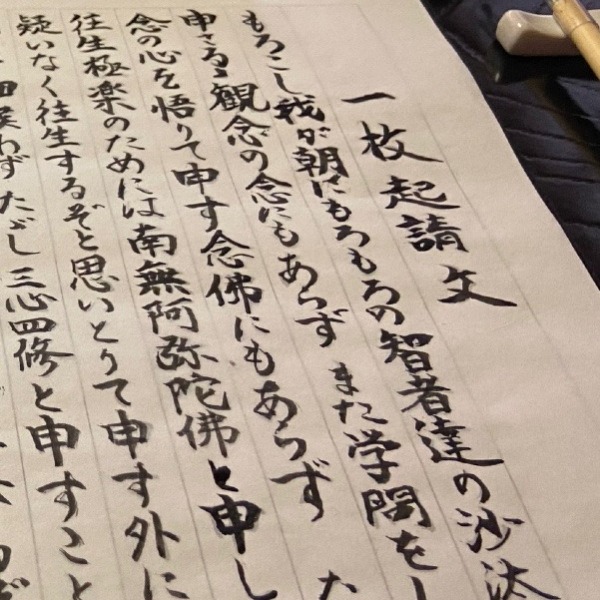 一枚起請文
もろこし我が朝にもろもろの智者達の沙汰
申さるゝ観念の念にもあらず また学問をし
念の心を悟りて申す念佛にもあらず た
往生極楽のためには南無阿弥陀佛と申し
疑いなく往生するぞと思いとりて申す外に
候わず たゞし 三心四修と申すこと